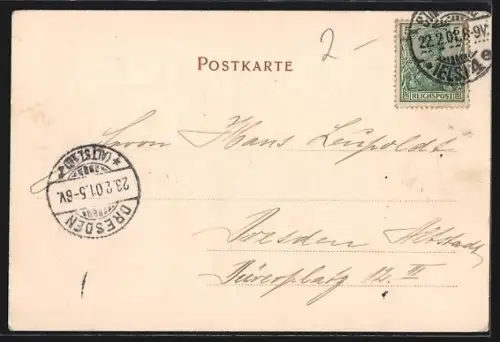 2-
POSTKARTE
5
REICHSPOST
22.2.01.8-9V.
(ELS.) 4e
Herrn Hans Leupoldt
Dresden Altstadt
Dürerplatz 12. III
DRESDEN
23.2.01.5-6V.
(ALTST.)